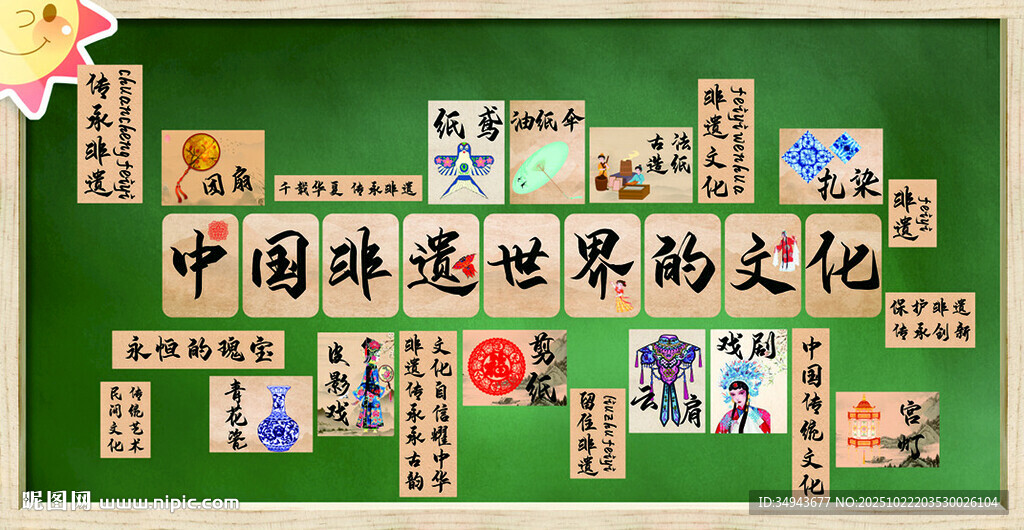 传承非遗
chuanchengfeiyi
团扇
千载华夏 传承非遗
纸鸢
油纸伞
古法
造纸
非遗文化
feiyiwenhua
扎染
非遗
feiyi
中国非遗世界的文化
保护非遗
传承创新
永恒的瑰宝
民间文化
传统艺术
青花瓷
皮影戏
文化自信耀中华
非遗传承承古韵
剪纸
福
留住非遗
liuzhufeiyi
云肩
戏剧
中国传统文化
宫灯
昵图网 www.nipic.com
ID:34943677 NO:20251022203530026104